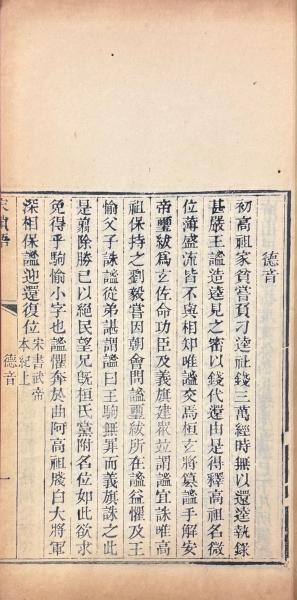 德音
初高祖家貧嘗負刁逵社錢三萬經時無以還逵執錄
甚嚴王謐造逵見之密以錢代還由是得釋高祖名微
位薄盛流皆不與相知唯謐交焉桓玄將篡謐手解安
帝璽紱爲玄佐命功臣及義旗建衆竝謂謐宜誅唯高
祖保持之劉毅嘗因朝會問謐璽紱所在謐益懼及王
愉父子誅謐從弟諶謂謐曰王駒無罪而義旗誅之此
是翦除勝己以絕民望兄旣桓氏黨附名位如此欲求
免得乎駒愉小字也謐懼奔於曲阿高祖牋白大將軍
深相保謐迎還復位宋書武帝本紀上
德音
一